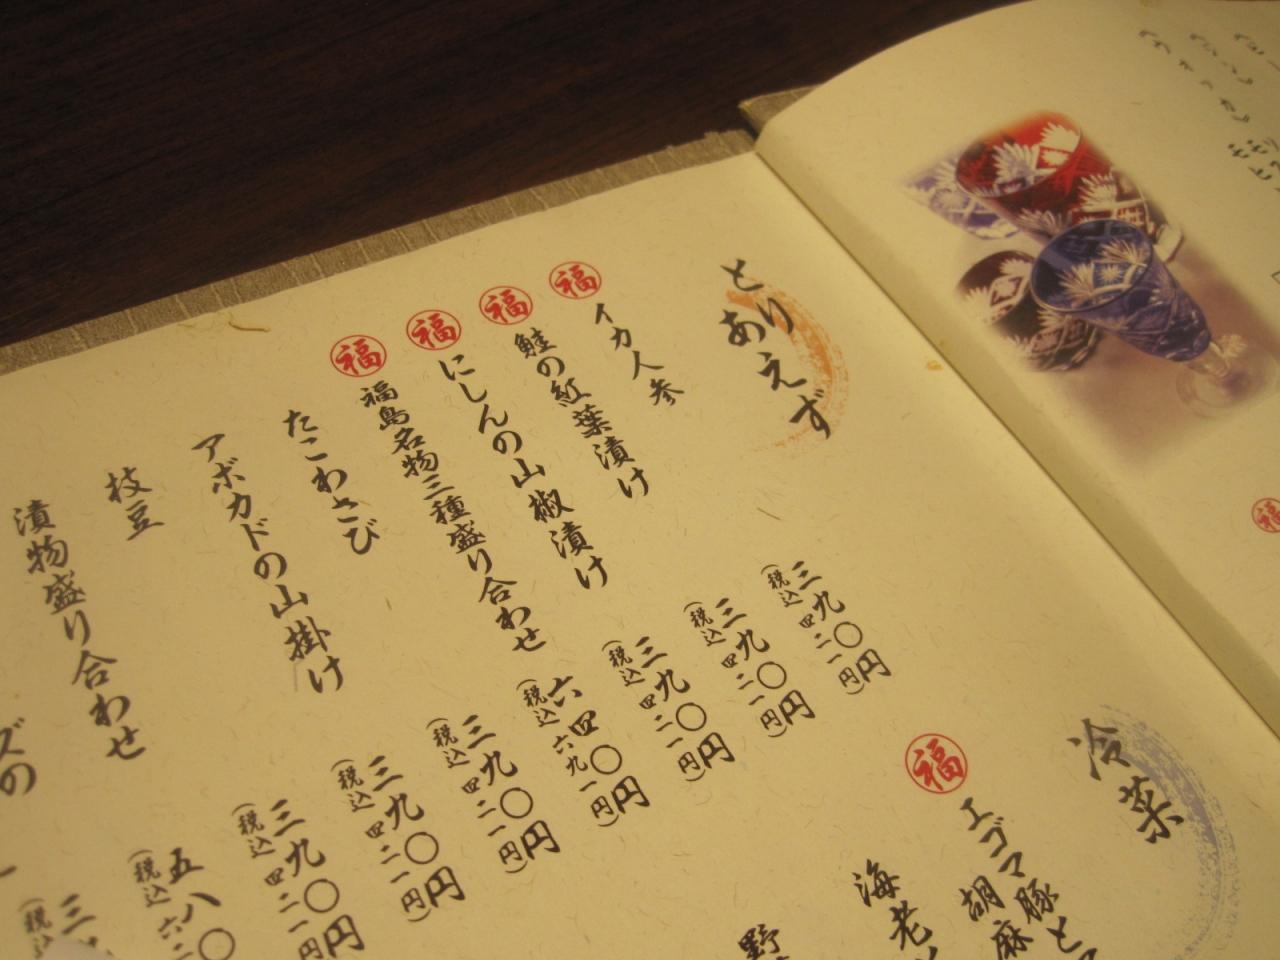 とりあえず
福 イカ人参 三九〇円
(税込 四二一円)
福 鮭の紅葉漬け 三九〇円
(税込 四二一円)
福 にしんの山椒漬け 三九〇円
(税込 四二一円)
福 福島名物三種盛り合わせ 六四〇円
(税込 六九一円)
たこわさび 三九〇円
(税込 四二一円)
アボカドの山掛け 三九〇円
(税込 四二一円)
枝豆 三九〇円
(税込 四二一円)
漬物盛り合わせ 五八〇
(税込 六二
ズの 三
(税込
冷菜
福 エゴマ豚と
胡麻
海老
野
福